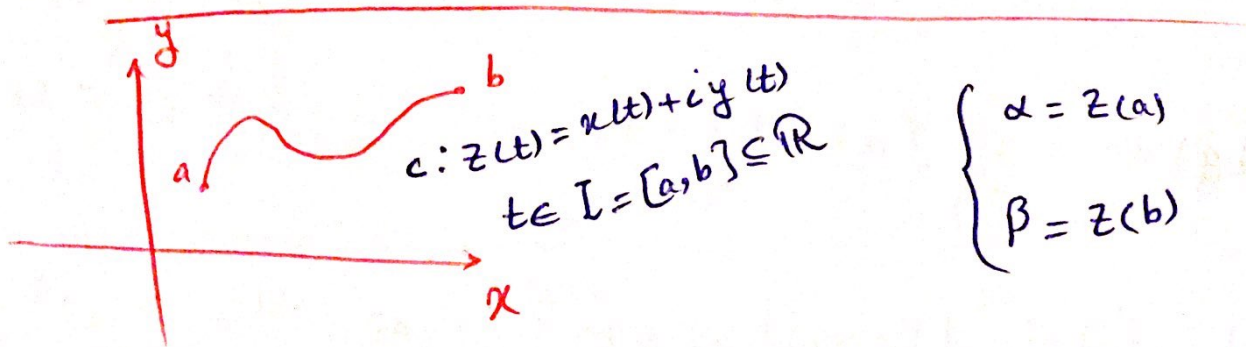 y
b
a
c: z(t) = x(t) + i y(t)
t ∈ I = [a, b] ⊆ ℝ
x
{ α = z(a)
β = z(b)